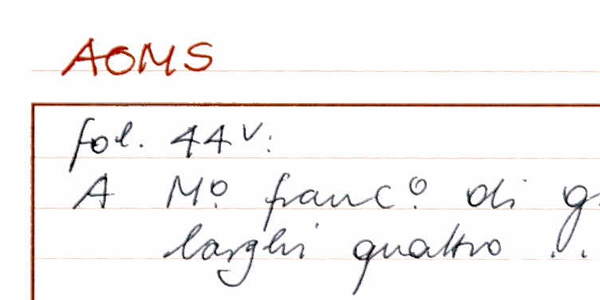 AOMS
fol. 44v:
A Mº francº di g
larghi quattro ..